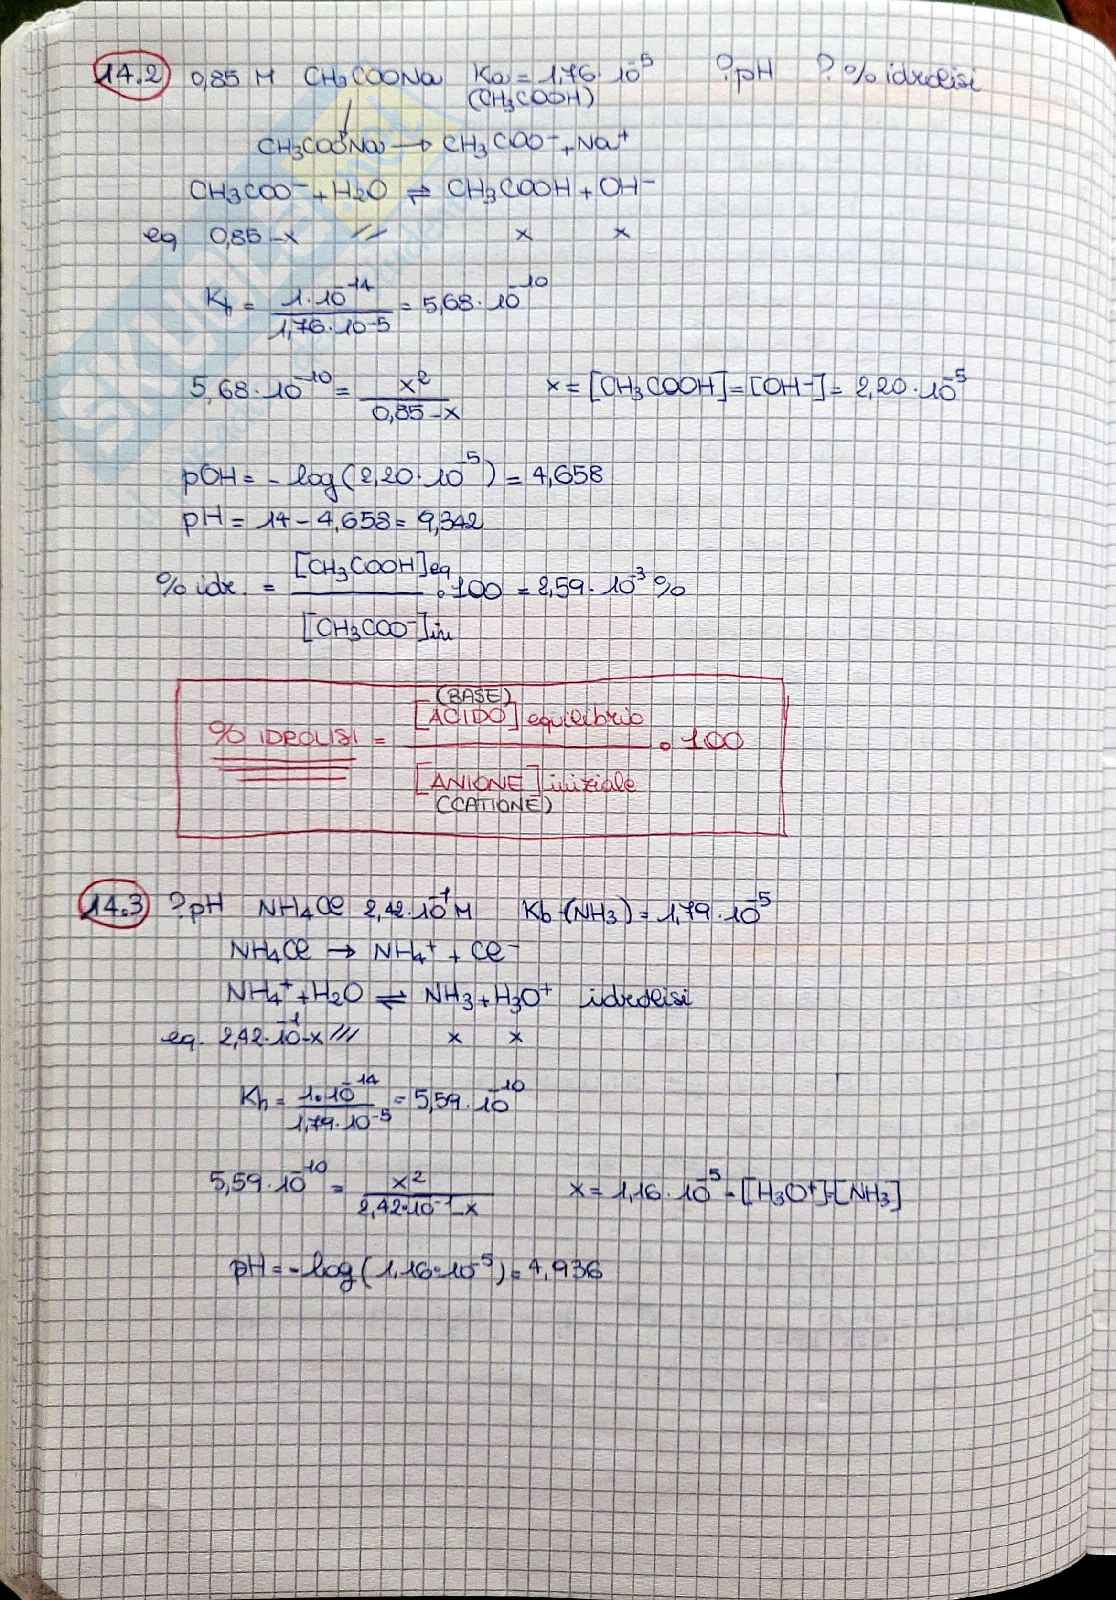 14.2 0,85 M CH3COONa Ka = 1,76·10⁻⁵ ?pH ?% idrolisi
(CH3COOH)
CH3COONa → CH3COO⁻ + Na⁺
CH3COO⁻ + H2O ⇌ CH3COOH + OH⁻
eq 0,85-x // x x
Kh = 1·10⁻¹⁴ / 1,76·10⁻⁵ = 5,68·10⁻¹⁰
5,68·10⁻¹⁰ = x² / 0,85-x x = [CH3COOH] = [OH⁻] = 2,20·10⁻⁵
pOH = -log(2,20·10⁻⁵) = 4,658
pH = 14 - 4,658 = 9,342
% idr. = [CH3COOH]eq / [CH3COO⁻]in · 100 = 2,59·10⁻³ %
(BASE)
% IDROLISI = [ACIDO] equilibrio / [ANIONE] iniziale · 100
(CATIONE)
14.3 ?pH NH4Cl 2,42·10⁻¹ M Kb (NH3) = 1,79·10⁻⁵
NH4Cl → NH4⁺ + Cl⁻
NH4⁺ + H2O ⇌ NH3 + H3O⁺ idrolisi
eq. 2,42·10⁻¹-x /// x x
Kh = 1·10⁻¹⁴ / 1,79·10⁻⁵ = 5,59·10⁻¹⁰
5,59·10⁻¹⁰ = x² / 2,42·10⁻¹-x x = 1,16·10⁻⁵ = [H3O⁺]=[NH3]
pH = -log(1,16·10⁻⁵) = 4,936